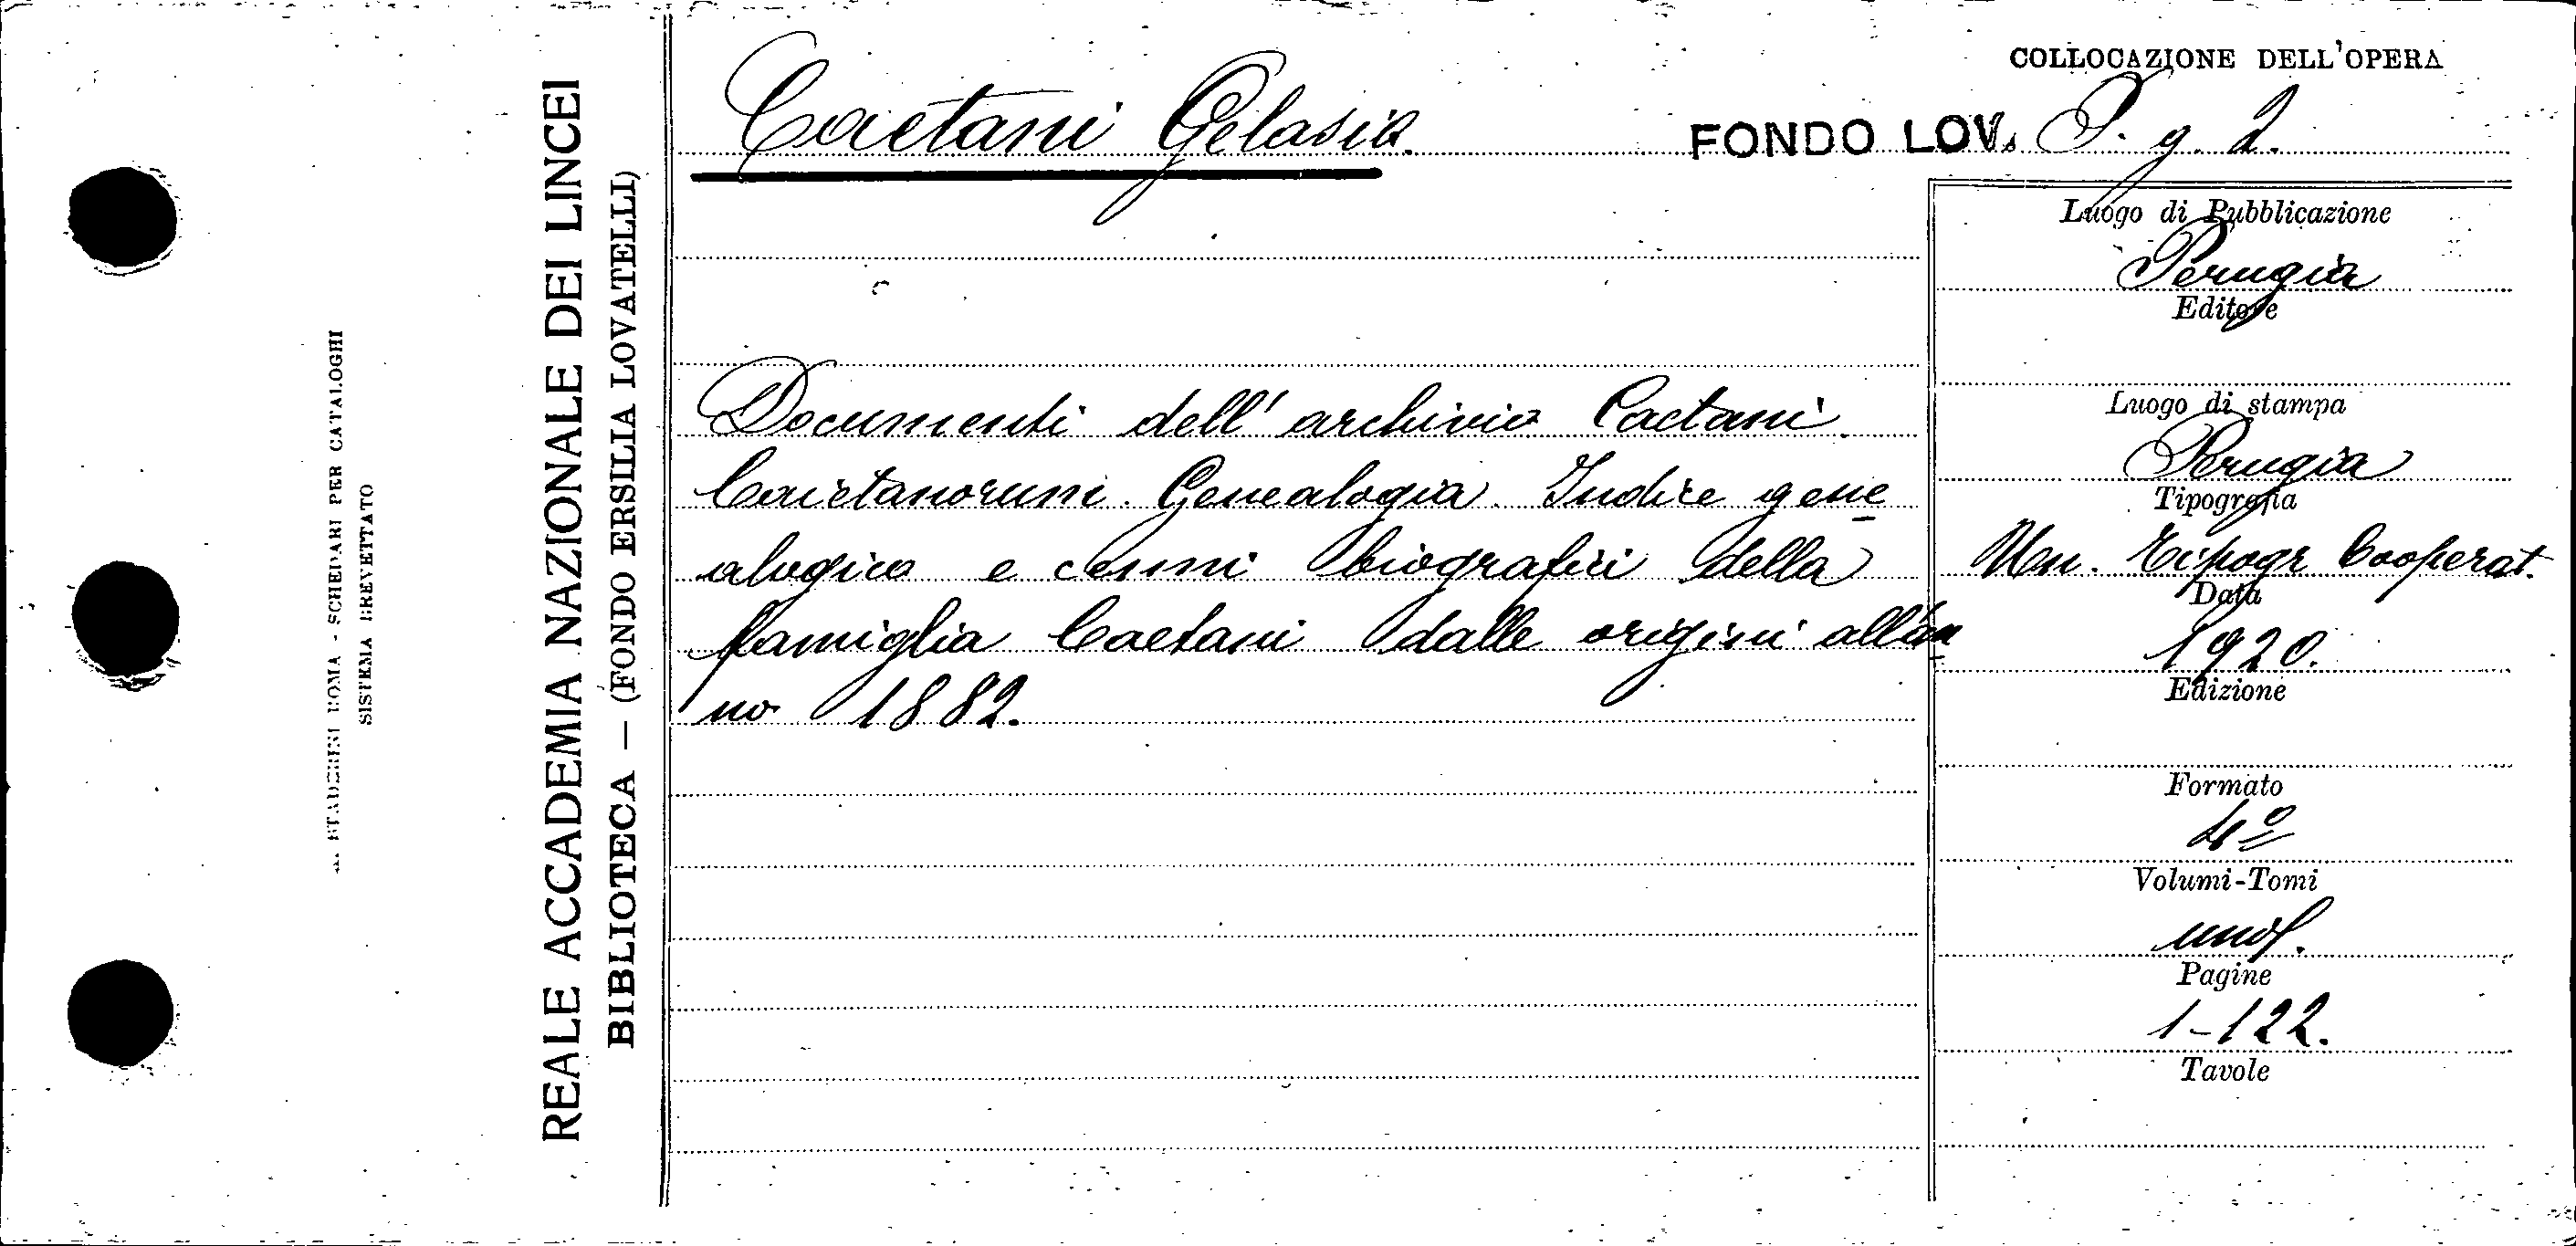 COLLOCAZIONE DELL'OPERA
Caetani Gelasio.
FONDO LOV. P. g. 2.
Documenti dell' archivio Caetani.
Caietanorum. Genealogia. Indice gene
alogico e cenni biografici della
famiglia Caetani dalle origini all'an
no 1882.
Luogo di Pubblicazione
Perugia
Editore
Luogo di stampa
Perugia
Tipografia
Un. Tipogr Cooperat.
Data
1920.
Edizione
Formato
4º
Volumi-Tomi
Pagine
1-122.
Tavole
REALE ACCADEMIA NAZIONALE DEI LINCEI
BIBLIOTECA — (FONDO ERSILIA LOVATELLI)
STADERINI ROMA - SCHEDARI PER CATALOGHI
SISTEMA BREVETTATO